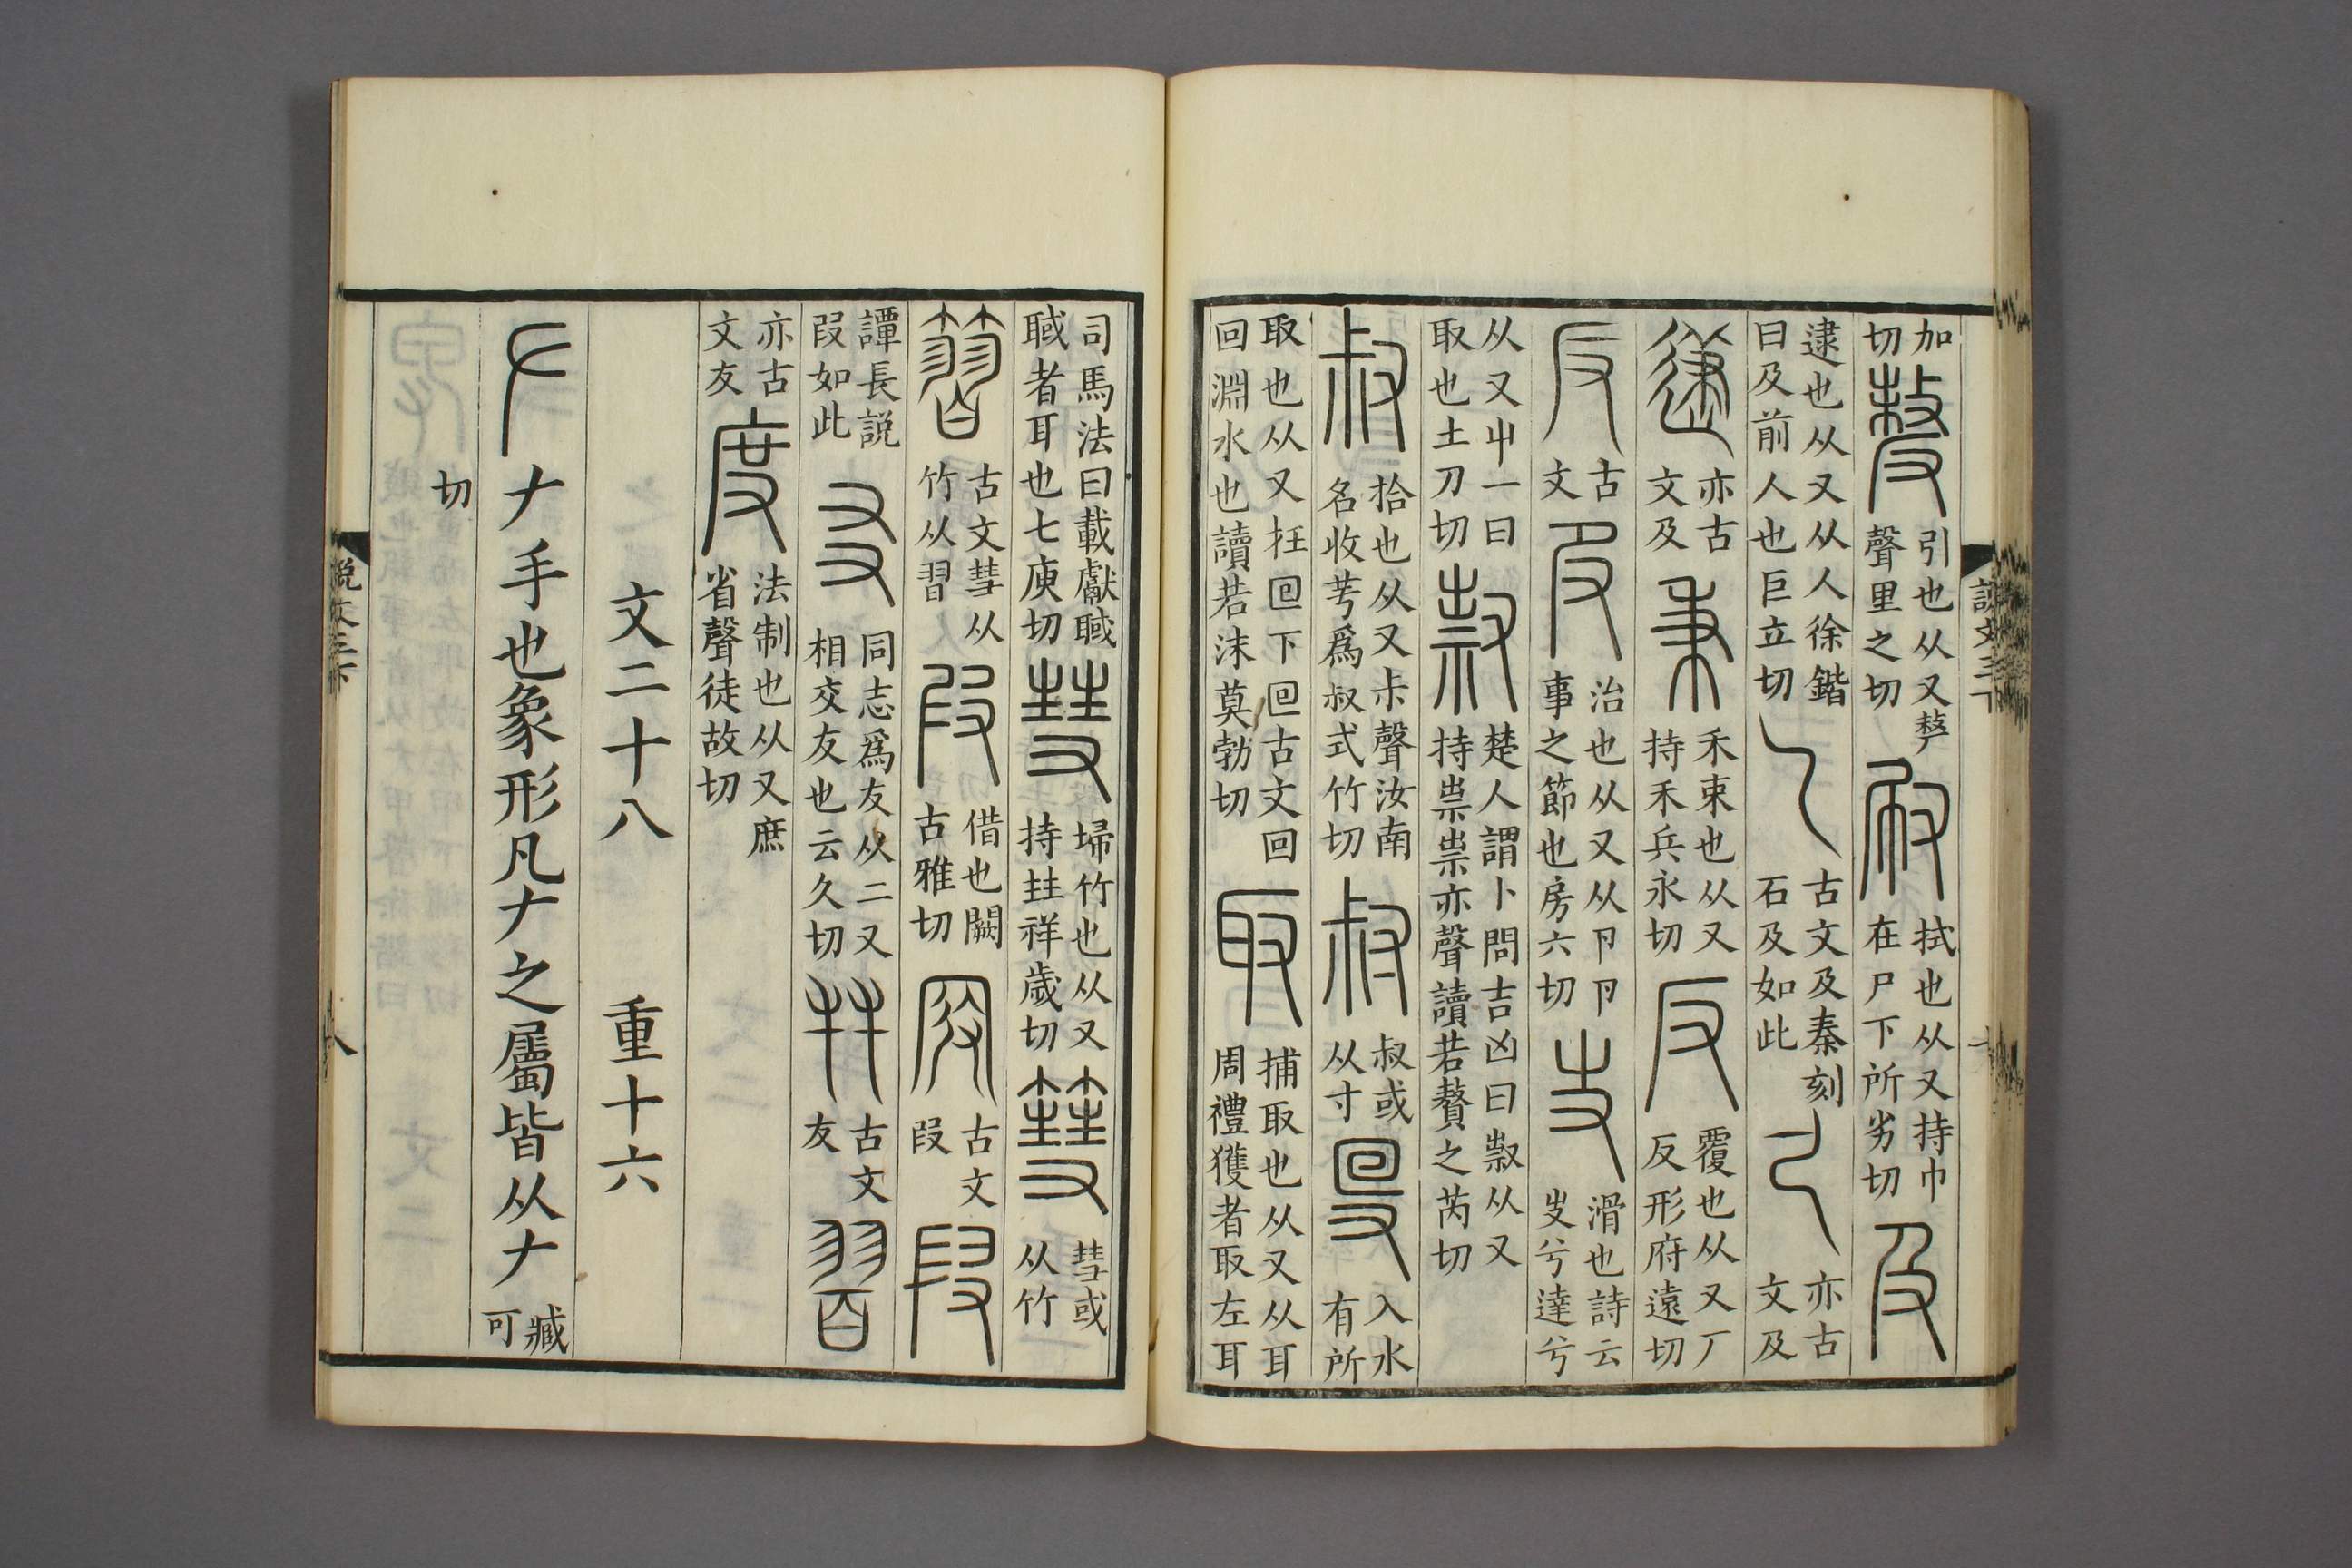 加
切
引也从又𠩺
聲里之切
拭也从又持巾
在尸下所劣切
逮也从又从人徐鍇
曰及前人也巨立切
古文及秦刻
石及如此
亦古
文及
亦古
文及
禾束也从又
持禾兵永切
覆也从又厂
反形府遠切
古
文
治也从又从卪卪
事之節也房六切
滑也詩云
㕞兮達兮
从又屮一曰
取也土刀切
楚人謂卜問吉凶曰𣀔从又
持祟祟亦聲讀若贅之芮切
拾也从又尗聲汝南
名收芌爲叔式竹切
叔或
从寸
入水
有所
取也从又在囘下囘古文回
回淵水也讀若沫莫勃切
捕取也从又从耳
周禮獲者取左耳
司馬法曰載獻聝
聝者耳也七庾切
埽竹也从又
持𤯓祥歲切
彗或
从竹
古文彗从
竹从習
借也闕
古雅切
古文
叚
譚長説
叚如此
同志爲友从二又
相交友也云久切
古文
友
亦古
文友
法制也从又庶
省聲徒故切
文二十八 重十六
𠂇手也象形凡𠂇之屬皆从𠂇
臧
可
切
説文三下
八